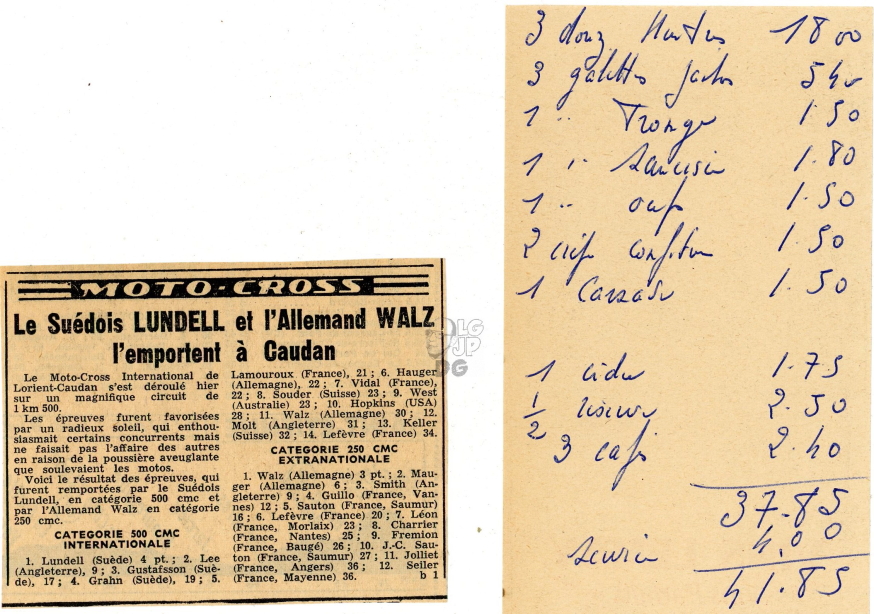 MOTO-CROSS
Le Suédois LUNDELL et l'Allemand WALZ
l'emportent à Caudan
Le Moto-Cross International de
Lorient-Caudan s'est déroulé hier
sur un magnifique circuit de
1 km 500.
Les épreuves furent favorisées
par un radieux soleil, qui enthou-
siasmait certains concurrents mais
ne faisait pas l'affaire des autres
en raison de la poussière aveuglante
que soulevaient les motos.
Voici le résultat des épreuves, qui
furent remportées par le Suédois
Lundell, en catégorie 500 cmc et
par l'Allemand Walz en catégorie
250 cmc.
CATEGORIE 500 CMC
INTERNATIONALE
1. Lundell (Suède) 4 pt. ; 2. Lee
(Angleterre), 9 ; 3. Gustafsson (Suè-
de), 17 ; 4. Grahn (Suède), 19 ; 5.
Lamouroux (France), 21 ; 6. Hauger
(Allemagne), 22 ; 7. Vidal (France),
22 ; 8. Souder (Suisse) 23 ; 9. West
(Australie) 23 ; 10. Hopkins (USA)
28 ; 11. Walz (Allemagne) 30 ; 12.
Molt (Angleterre) 31 ; 13. Keller
(Suisse) 32 ; 14. Lefèvre (France) 34.
CATEGORIE 250 CMC
EXTRANATIONALE
1. Walz (Allemagne) 3 pt. ; 2. Mau-
ger (Allemagne) 6 ; 3. Smith (An-
gleterre) 9 ; 4. Guillo (France, Van-
nes) 12 ; 5. Sauton (France, Saumur)
16 ; 6. Lefèvre (France) 20 ; 7. Léon
(France, Morlaix) 23 ; 8. Charrier
(France, Nantes) 25 ; 9. Fremion
(France, Baugé) 26 ; 10. J.-C. Sau-
ton (France, Saumur) 27 ; 11. Jolliet
(France, Angers) 36 ; 12. Seller
(France, Mayenne) 36. b 1
LG
JP
DG
3 douz 18 00
3 galettes 5 40
1 " 1.50
1 " 1.80
1 " oeufs 1.50
2 confiture 1.50
1 1.50
1 cidre 1.75
1/2 2.50
3 cafés 2.40
37.85
4,00
41.85